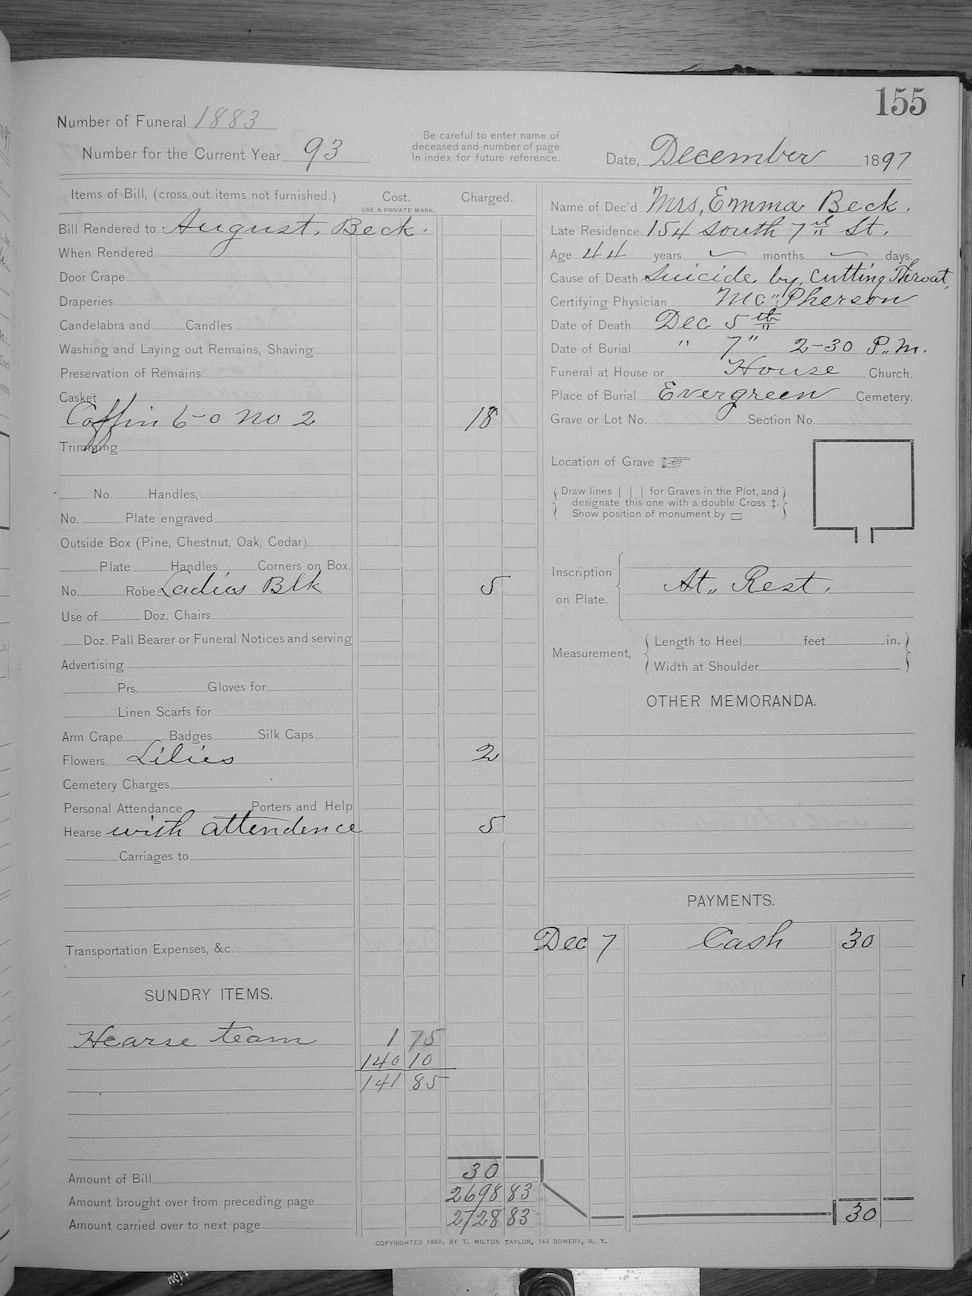 155
Number of Funeral 1883
Number for the Current Year 93
Be careful to enter name of
deceased and number of page
in index for future reference.
Date, December 1897
Items of Bill, (cross out items not furnished.) Cost. Charged.
USE A PRIVATE MARK.
Bill Rendered to August, Beck.
When Rendered
Door Crape
Draperies
Candelabra and Candles
Washing and Laying out Remains, Shaving
Preservation of Remains
Casket
Coffin 6-0 No 2 18
Trimming
No. Handles,
No. Plate engraved
Outside Box (Pine, Chestnut, Oak, Cedar)
Plate Handles Corners on Box.
No. Robe Ladies Blk 5
Use of Doz. Chairs
Doz. Pall Bearer or Funeral Notices and serving
Advertising
Prs. Gloves for
Linen Scarfs for
Arm Crape Badges Silk Caps
Flowers Lilies 2
Cemetery Charges
Personal Attendance Porters and Help
Hearse with attendence 5
Carriages to
Transportation Expenses, &c.
SUNDRY ITEMS.
Hearse team 1 75
140 10
141 85
Amount of Bill 30
Amount brought over from preceding page 2698 83
Amount carried over to next page 2728 83
Name of Dec'd Mrs, Emma Beck.
Late Residence 154 South 7th St.
Age 44 years months days
Cause of Death Suicide by, cutting Throat,
Certifying Physician Mc"Pherson
Date of Death Dec 5th
Date of Burial " 7" 2-30 P.M.
Funeral at House or House Church.
Place of Burial Evergreen Cemetery.
Grave or Lot No. Section No.
Location of Grave
Draw lines | | | for Graves in the Plot, and
designate this one with a double Cross ‡.
Show position of monument by
Inscription
on Plate.
At,, Rest.
Measurement,
Length to Heel feet in.
Width at Shoulder
OTHER MEMORANDA.
PAYMENTS.
Dec 7 Cash 30
30
COPYRIGHTED 1890, BY T. MILTON TAYLOR, 163 BOWERY, N. Y.